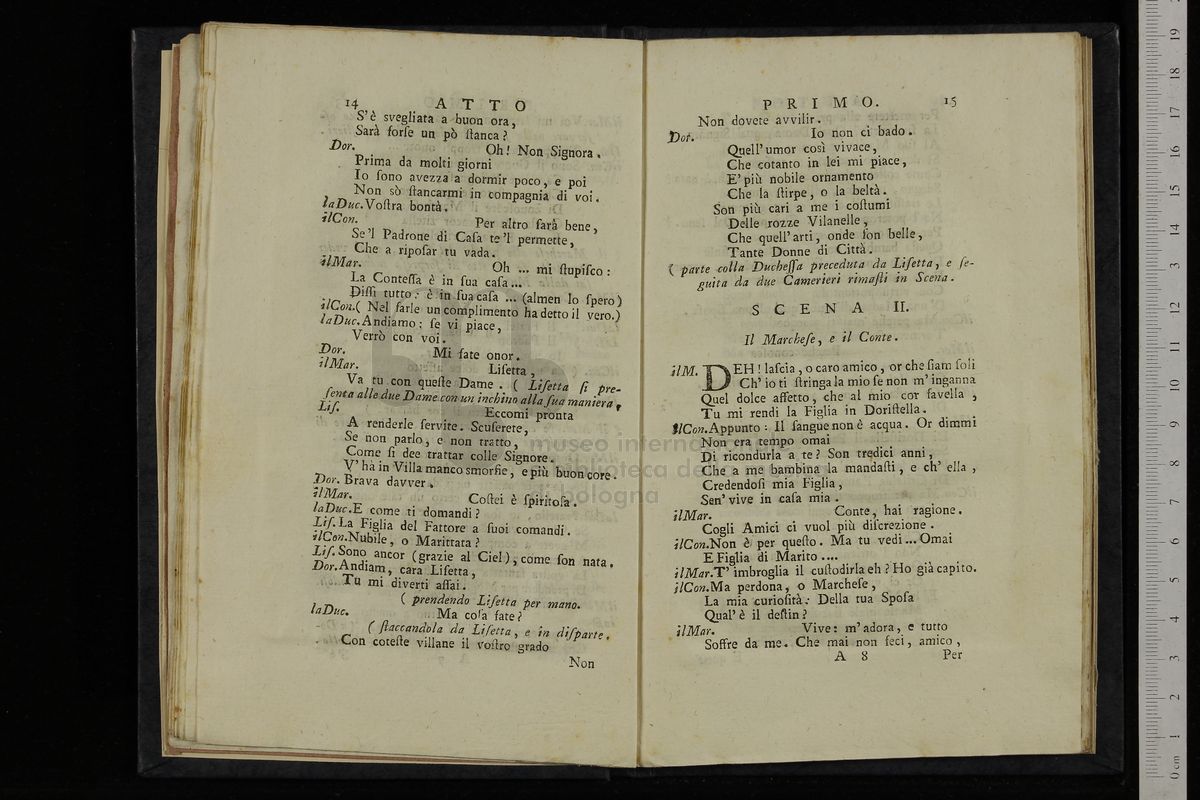 14 ATTO
S'è svegliata a buon ora,
Sarà forſe un pò ſtanca?
Dor. Oh! Non Signora.
Prima da molti giorni
Io ſono avezza a dormir poco, e poi
Non sò ſtancarmi in compagnia di voi.
laDuc.Voſtra bontà.
ilCon. Per altro ſarà bene,
Se'l Padrone di Caſa te'l permette,
Che a ripoſar tu vada.
ilMar. Oh ... mi ſtupiſco:
La Conteſſa è in ſua caſa...
Diſſi tutto: è in ſua caſa ... (almen lo ſpero)
ilCon.( Nel farle un complimento ha detto il vero.)
laDuc.Andiamo: ſe vi piace,
Verrò con voi.
Dor. Mi fate onor.
ilMar. Liſetta,
Va tu con queſte Dame. ( Liſetta ſi pre-
ſenta alle due Dame con un inchino alla ſua maniera,
Liſ. Eccomi pronta
A renderle ſervite. Scuſerete,
Se non parlo, e non tratto,
Come ſi dee trattar colle Signore.
V'hà in Villa manco smorfie, e più buon core.
Dor. Brava davver.
ilMar. Coſtei è ſpiritoſa.
laDuc.E come ti domandi?
Liſ.La Figlia del Fattore a ſuoi comandi.
ilCon.Nubile, o Marittata?
Liſ.Sono ancor (grazie al Ciel), come ſon nata.
Dor.Andiam, cara Liſetta,
Tu mi diverti aſſai.
( prendendo Liſetta per mano.
laDuc. Ma coſa fate?
( ſtaccandola da Liſetta, e in diſparte.
Con coteſte villane il voſtro grado
Non
PRIMO. 15
Non dovete avvilir.
Dor. Io non ci bado.
Quell'umor così vivace,
Che cotanto in lei mi piace,
E' più nobile ornamento
Che la ſtirpe, o la beltà.
Son più cari a me i coſtumi
Delle rozze Vilanelle,
Che quell'arti, onde ſon belle,
Tante Donne di Città.
( parte colla Ducheſſa preceduta da Liſetta, e ſe-
guita da due Camerieri rimaſti in Scena.
SCENA II.
Il Marcheſe, e il Conte.
ilM. DEH! laſcia, o caro amico, or che ſiam ſoli
Ch'io ti ſtringa la mio ſe non m'inganna
Quel dolce affetto, che al mio cor favella,
Tu mi rendi la Figlia in Doriſtella.
ilCon.Appunto: Il ſangue non è acqua. Or dimmi
Non era tempo omai
Di ricondurla a te? Son tredici anni,
Che a me bambina la mandaſti, e ch'ella,
Credendoſi mia Figlia,
Sen'vive in caſa mia.
ilMar. Conte, hai ragione.
Cogli Amici ci vuol più diſcrezione.
ilCon.Non è per queſto. Ma tu vedi... Omai
E Figlia di Marito....
ilMar.T'imbroglia il cuſtodirla eh? Ho già capito.
ilCon.Ma perdona, o Marcheſe,
La mia curioſità: Della tua Spoſa
Qual'è il deſtin?
ilMar. Vive: m'adora, e tutto
Soffre da me. Che mai non feci, amico,
A 8 Per
museo interna
biblioteca de
di bologna